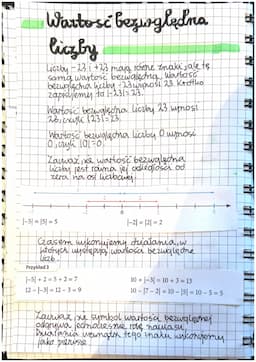 Wartość bezwzględna
liczby
Liczby -23 i +23 mają różne znaki, ale tę
samą wartość bezwzględną. Wartość
bezwzględna liczby -23 wynosi 23. Krótko
zapisujemy to |-23| = 23.
Wartość bezwzględna liczby 23 wynosi
23, czyli |23| = 23.
Wartość bezwzględna liczby 0 wynosi
0, czyli |0| = 0.
Zauważ, że wartość bezwzględna
liczby jest równa jej odległości od
zera na osi liczbowej.
|-5| = |5| = 5
|-2| = |2| = 2
Czasem wykonujemy działania, w
których występują wartości bezwzględne
liczb.
Przykład 3
|-5| + 2 = 5 + 2 = 7
12 - |-3| = 12 - 3 = 9
10 + |-3| = 10 + 3 = 13
10 - |7 - 2| = 10 - |5| = 10 - 5 = 5
Zauważ, że symbol wartości bezwzględnej
odgrywa jednocześnie rolę nawiasu,
działania wewnątrz tego znaku wykonujemy
jako pierwsze.